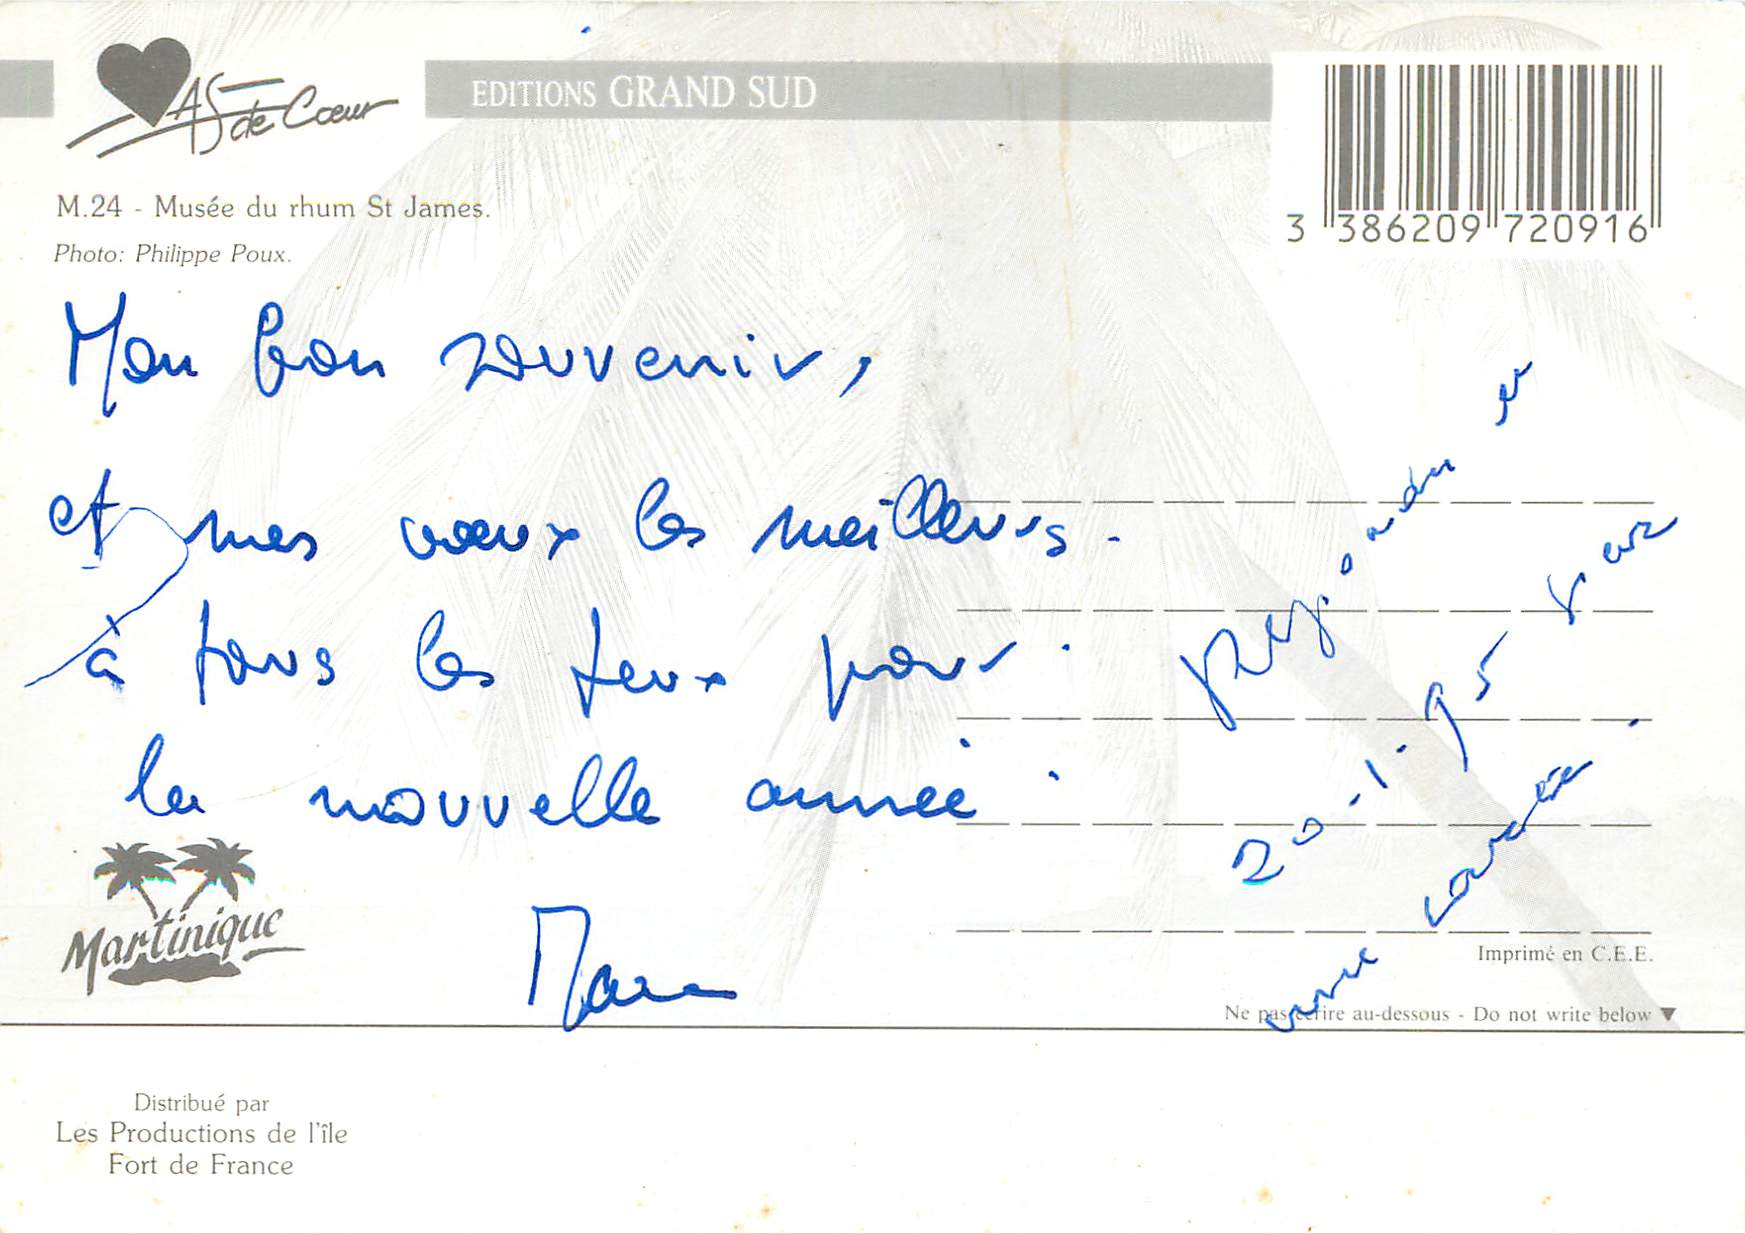 AS de Cœur
EDITIONS GRAND SUD
3 386209 720916
M.24 - Musée du rhum St James.
Photo: Philippe Poux.
Mon bon souvenir,
et mes vœux les meilleurs.
à tous les deux pour
la nouvelle année
Répondu le
20-1-95 par
une
Martinique
Imprimé en C.E.E.
Ne pas écrire au-dessous - Do not write below
Distribué par
Les Productions de l'île
Fort de France